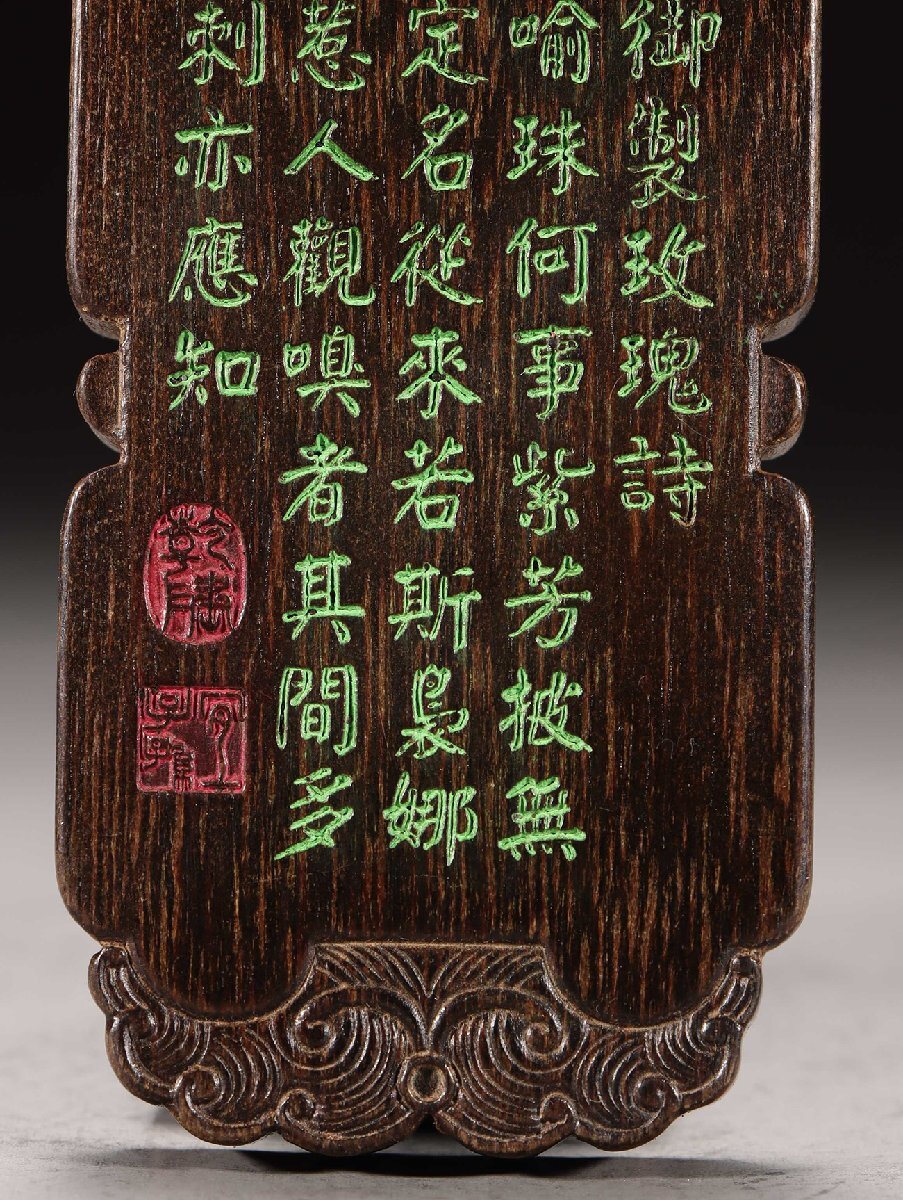 御製玫瑰詩
喻珠何事紫芳披無
定名從來若斯裊娜
惹人觀嗅者其間多
刺亦應知